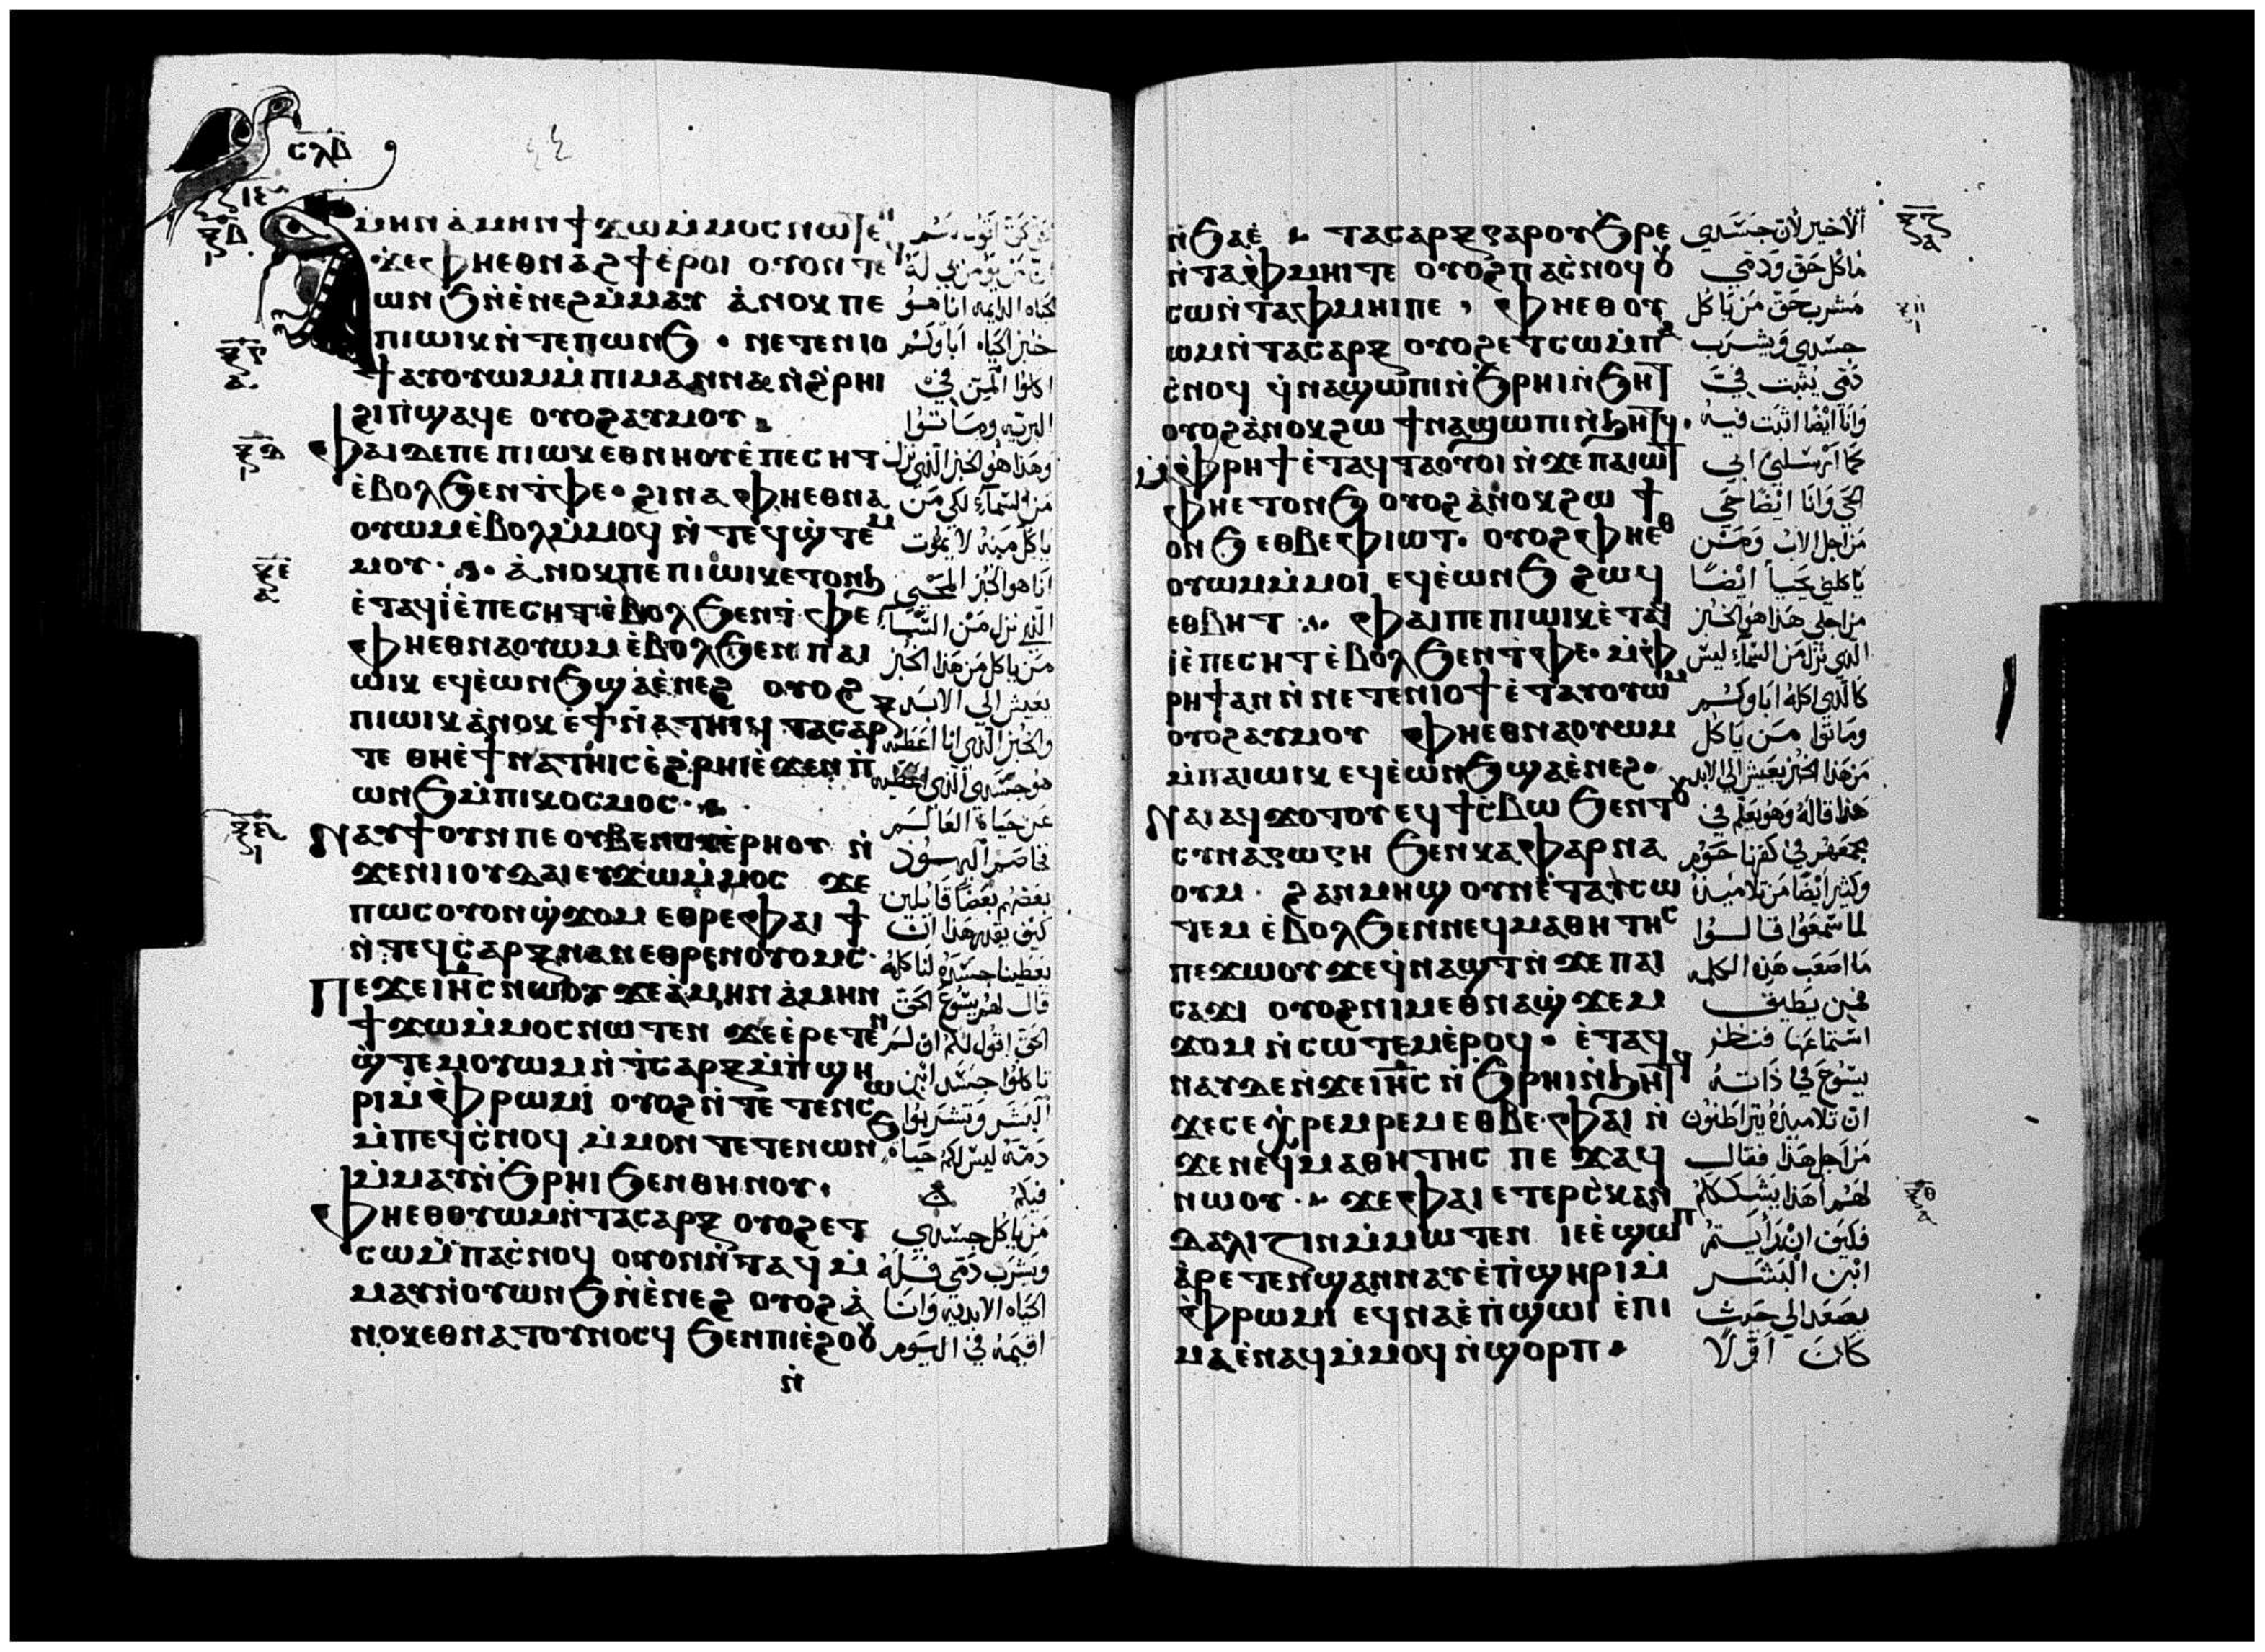 ⲥⲗⲇ
ⲙⲏⲛ ⲁ̀ⲙⲏⲛ ϯϫⲱⲙ̀ⲙⲟⲥ ⲛⲱⲧⲉⲛ
ϫⲉ ⲫⲏⲉⲑⲛⲁϩϯ ⲉ̀ⲣⲟⲓ ⲟⲩⲟⲛⲧⲉ
ⲱⲛϧ ⲛ̀ⲉ̀ⲛⲉϩ ⲙ̀ⲙⲁⲩ ⲁ̀ⲛⲟⲕ ⲡⲉ
ⲡⲓⲱⲓⲕ ⲛ̀ⲧⲉ ⲡⲱⲛϧ · ⲛⲉⲧⲉⲛⲓⲟ
ϯ ⲁⲩⲟⲩⲱⲙ ⲙ̀ⲡⲓⲙⲁⲛⲛⲁ ⲛ̀ϩⲣⲏⲓ
ϩⲓⲡ̀ϣⲁϥⲉ ⲟⲩⲟϩ ⲁⲩⲙⲟⲩ
ⲫⲁⲓ ⲇⲉ ⲡⲉ ⲡⲓⲱⲓⲕ ⲉⲑⲛⲏⲟⲩ ⲉ̀ⲡⲉⲥⲏⲧ
ⲉ̀ⲃⲟⲗϧⲉⲛ ⲧ̀ⲫⲉ · ϩⲓⲛⲁ ⲫⲏⲉⲑⲛⲁ
ⲟⲩⲱⲙ ⲉ̀ⲃⲟⲗⲙ̀ⲙⲟϥ ⲛ̀ⲧⲉϥϣ̀ⲧⲉⲙ
ⲙⲟⲩ · ⲁ̀ⲛⲟⲕ ⲡⲉ ⲡⲓⲱⲓⲕ ⲉⲧⲟⲛϧ
ⲉ̀ⲧⲁϥⲓ̀ ⲉ̀ⲡⲉⲥⲏⲧ ⲉ̀ⲃⲟⲗϧⲉⲛ ⲧ̀ⲫⲉ
ⲫⲏⲉⲑⲛⲁⲟⲩⲱⲙ ⲉ̀ⲃⲟⲗϧⲉⲛ ⲡⲁⲓ
ⲱⲓⲕ ⲉϥⲉ̀ⲱⲛϧ ϣⲁⲉ̀ⲛⲉϩ ⲟⲩⲟϩ
ⲡⲓⲱⲓⲕ ⲁ̀ⲛⲟⲕ ⲉ̀ϯⲛ̀ⲁⲧⲏⲓϥ ⲧⲁⲥⲁⲣⲝ
ⲧⲉ ⲑⲏⲉ̀ϯⲛⲁⲧⲏⲓⲥ ⲉ̀ϩⲣⲏⲓ ⲉ̀ϫⲉⲛ ⲡ̀
ⲱⲛϧ ⲙ̀ⲡⲓⲕⲟⲥⲙⲟⲥ ·
ⲛⲁⲩϯ ⲟⲩⲛ ⲡⲉ ⲟⲩⲃⲉ ⲛⲟⲩⲉ̀ⲣⲏⲟⲩ ⲛ̀
ϫⲉ ⲛⲓⲓⲟⲩⲇⲁⲓ ⲉⲩϫⲱⲙ̀ⲙⲟⲥ ϫⲉ
ⲡⲱⲥ ⲟⲩⲟⲛϣ̀ϫⲟⲙ ⲉⲑⲣⲉ ⲫⲁⲓ ϯ
ⲛ̀ⲧⲉϥⲥⲁⲣⲝ ⲛⲁⲛ ⲉⲑⲣⲉⲛⲟⲩⲟⲙⲥ ·
ⲡⲉϫⲉ ⲓⲏ̅ⲥ ⲛⲱⲟⲩ ϫⲉ ⲁ̀ⲙⲏⲛ ⲁ̀ⲙⲏⲛ
ϯϫⲱⲙ̀ⲙⲟⲥ ⲛⲱⲧⲉⲛ ϫⲉ ⲉ̀ⲣⲉⲧⲉⲛ
ϣ̀ⲧⲉⲙⲟⲩⲱⲙ ⲛ̀ⲧ̀ⲥⲁⲣⲝ ⲙ̀ⲡ̀ϣⲏ
ⲣⲓ ⲙ̀ⲫⲣⲱⲙⲓ ⲟⲩⲟϩ ⲛ̀ⲧⲉⲧⲉⲛⲥⲱ
ⲙ̀ⲡⲉϥⲥ̀ⲛⲟϥ ⲙ̀ⲙⲟⲛ ⲧⲉⲧⲉⲛ ⲱⲛϧ
ⲙ̀ⲙⲁⲩ ⲛ̀ϧⲣⲏⲓ ϧⲉⲛ ⲑⲏⲛⲟⲩ ·
ⲫⲏⲉⲑⲟⲩⲱⲙ ⲛ̀ⲧⲁⲥⲁⲣⲝ ⲟⲩⲟϩ ⲉⲧ
ⲥⲱ ⲙ̀ⲡⲁⲥ̀ⲛⲟϥ ⲟⲩⲟⲛⲛ̀ⲧⲁϥ ⲙ̀
ⲙⲁⲩ ⲛ̀ⲟⲩⲱⲛϧ ⲛ̀ⲉ̀ⲛⲉϩ ⲟⲩⲟϩ ⲁ̀
ⲛⲟⲕ ⲉⲑⲛⲁⲧⲟⲩⲛⲟⲥϥ ϧⲉⲛ ⲡⲓⲉ̀ϩⲟⲟⲩ
ⲛ̀
الحياه الدايمه انا هو
خبز الحياه اباوكم
اكلوا المن في
البريه وماتوا
وهذا هو الخبز الذي نزل
من السماء لكي من
ياكل منه لا يموت
انا هو الخبز المحيي
الذي نزل من السماء
من ياكل من هذا الخبز
يعيش الي الابد
والخبز الذي انا اعطيه
هو جسدي الذي اعطيه
عن حياة العالم
فخاصم اليهود
بعضهم بعضا قايلين
كيف يقدر هذا ان
يعطينا جسده لناكله
قال لهم يسوع الحق
الحق اقول لكم ان لم
تاكلوا جسد ابن
البشر وتشربوا
دمه ليس لكم حياه
فيكم
من ياكل جسدي
ويشرب دمي فله
الحياه الابديه وانا
اقيمه في اليوم
ⲛ̀ϧⲁⲉ̀ ⲧⲁⲥⲁⲣⲝ ⲅⲁⲣ ⲟⲩϧⲣⲉ
ⲛ̀ⲧⲁⲫⲙⲏⲓ ⲧⲉ ⲟⲩⲟϩ ⲡⲁⲥ̀ⲛⲟϥ ⲟⲩ
ⲥⲱ ⲛ̀ⲧⲁⲫⲙⲏⲓ ⲡⲉ · ⲫⲏⲉⲑⲟⲩ
ⲱⲙ ⲛ̀ⲧⲁⲥⲁⲣⲝ ⲟⲩⲟϩ ⲉⲧⲥⲱ ⲙ̀ⲡⲁ
ⲥ̀ⲛⲟϥ ϥ̀ⲛⲁϣⲱⲡⲓ ⲛ̀ϧⲣⲏⲓ ⲛ̀ϧⲏⲧ
ⲟⲩⲟϩ ⲁ̀ⲛⲟⲕ ϩⲱ ϯⲛⲁϣⲱⲡⲓ ⲛ̀ϧⲏⲧϥ ·
ⲙ̀ⲫⲣⲏϯ ⲉ̀ⲧⲁϥⲧⲁⲟⲩⲟⲓ ⲛ̀ϫⲉ ⲡⲁⲓⲱⲧ
ⲫⲏⲉⲧⲟⲛϧ ⲟⲩⲟϩ ⲁ̀ⲛⲟⲕ ϩⲱ ϯ
ⲟⲛϧ ⲉⲑⲃⲉ ⲫⲓⲱⲧ · ⲟⲩⲟϩ ⲫⲏⲉⲑ
ⲟⲩⲱⲙ ⲙ̀ⲙⲟⲓ ⲉϥⲉ̀ⲱⲛϧ ϩⲱϥ
ⲉⲑⲃⲏⲧ ⲫⲁⲓ ⲡⲉ ⲡⲓⲱⲓⲕ ⲉ̀ⲧⲁϥ
ⲓ̀ ⲉ̀ⲡⲉⲥⲏⲧ ⲉ̀ⲃⲟⲗϧⲉⲛ ⲧ̀ⲫⲉ · ⲙ̀ⲫ
ⲣⲏϯ ⲁⲛ ⲛ̀ⲛⲉⲧⲉⲛⲓⲟϯ ⲉ̀ⲧⲁⲩⲟⲩⲱⲙ
ⲟⲩⲟϩ ⲁⲩⲙⲟⲩ ⲫⲏⲉⲑⲛⲁⲟⲩⲱⲙ
ⲙ̀ⲡⲁⲓⲱⲓⲕ ⲉϥⲉ̀ⲱⲛϧ ϣⲁⲉ̀ⲛⲉϩ ·
ⲛⲁⲓ ⲁϥϫⲟⲧⲟⲩ ⲉϥϯⲥ̀ⲃⲱ ϧⲉⲛ ⲧⲟⲩ
ⲥⲩⲛⲁⲅⲱⲅⲏ ϧⲉⲛ ⲕⲁⲫⲁⲣⲛⲁ
ⲟⲩⲙ · ϩⲁⲛⲙⲏϣ ⲟⲩⲛ ⲉ̀ⲧⲁⲩⲥⲱ
ⲧⲉⲙ ⲉ̀ⲃⲟⲗϧⲉⲛ ⲛⲉϥⲙⲁⲑⲏⲧⲏⲥ
ⲡⲉϫⲱⲟⲩ ϫⲉ ϥ̀ⲛⲁϣⲧ ⲛ̀ϫⲉ ⲡⲁⲓ
ⲥⲁϫⲓ ⲟⲩⲟϩ ⲛⲓⲙ ⲉⲑⲛⲁϣ̀ϫⲉⲙ
ϫⲟⲙ ⲛ̀ⲥⲱⲧⲉⲙ ⲉ̀ⲣⲟϥ · ⲉ̀ⲧⲁϥ
ⲛⲁⲩ ⲇⲉ ⲛ̀ϫⲉ ⲓⲏ̅ⲥ ⲛ̀ϧⲣⲏⲓ ⲛ̀ϧⲏⲧϥ
ϫⲉ ⲥⲉⲭ̀ⲣⲉⲙⲣⲉⲙ ⲉⲑⲃⲉ ⲫⲁⲓ ⲛ̀
ϫⲉ ⲛⲉϥⲙⲁⲑⲏⲧⲏⲥ ⲡⲉϫⲁϥ
ⲛⲱⲟⲩ · ϫⲉ ⲫⲁⲓ ⲉⲧⲉⲣⲥ̀ⲕⲁⲛ
ⲇⲁⲗⲓⲍⲓⲛ ⲙ̀ⲙⲱⲧⲉⲛ ⲓⲉ ⲉ̀ϣⲱⲡ
ⲁ̀ⲣⲉⲧⲉⲛϣⲁⲛⲛⲁⲩ ⲉ̀ⲡ̀ϣⲏⲣⲓ ⲙ̀
ⲫⲣⲱⲙⲓ ⲉϥⲛⲁ ⲉ̀ⲡ̀ϣⲱⲓ ⲉ̀ⲡⲓ
ⲙⲁ ⲉ̀ⲛⲁϥⲙ̀ⲙⲟϥ ⲛ̀ϣⲟⲣⲡ
الاخير لان جسدي
ماكل حق ودمي
مشرب حق من ياكل
جسدي ويشرب
دمي يثبت في
وانا ايضا اثبت فيه
كما ارسلني ابي
الحي وانا ايضا حي
من اجل الاب ومن
ياكلني يحيا ايضا
من اجلي هذا هو الخبز
الذي نزل من السماء ليس
كالذي اكله اباوكم
وماتوا من ياكل
من هذا الخبز يعيش الي الابد
هذا قاله وهو يعلم في
مجمعهم في كفرناحوم
وكثير ايضا من تلاميذه
لما سمعوا قالوا
ما اصعب هذه الكلمه
فمن يطيق
استماعها فنظر
يسوع في ذاته
ان تلاميذه يتراطنون
من اجل هذا فقال
لهم اهذا يشككم
فكيف ان رايتم
ابن البشر
يصعد الي حيث
كان اولا